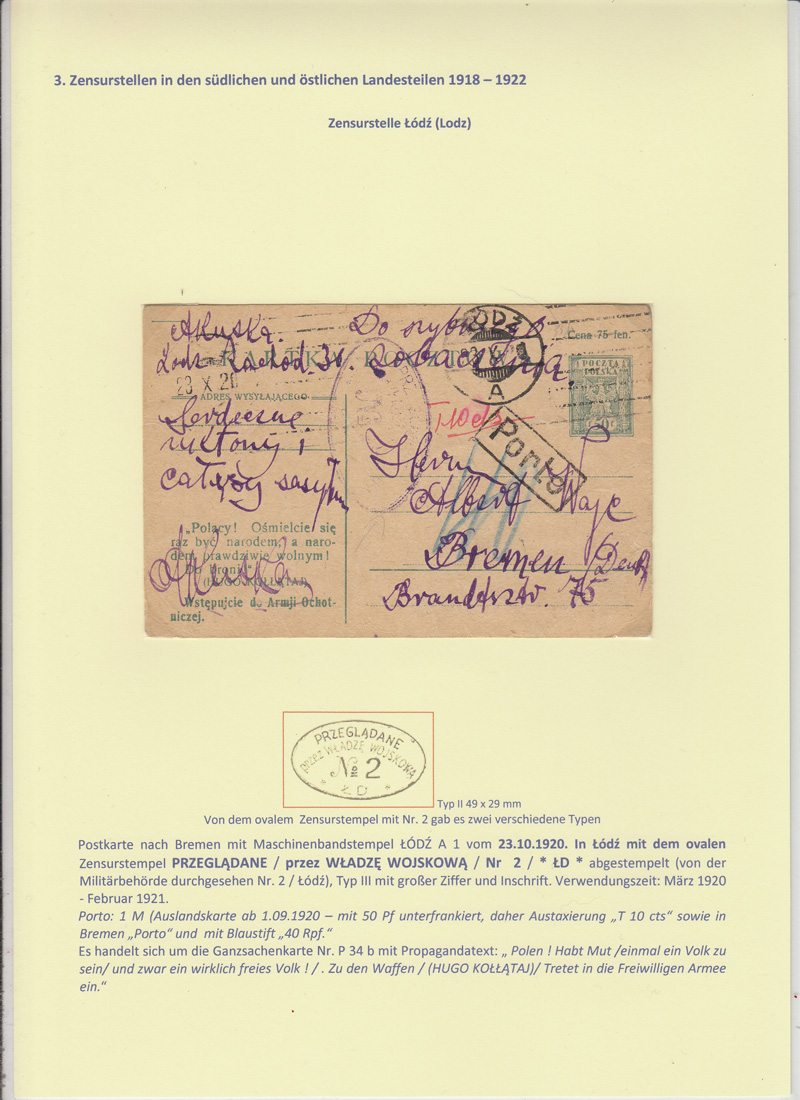 3. Zensurstellen in den südlichen und östlichen Landesteilen 1918 – 1922
Zensurstelle Łódź (Lodz)
Do
Cena 75 fen.
KARTKA POCZTOWA
23 X 20
ADRES WYSYŁAJĄCEGO
POCZTA
POLSKA
ŁÓDŹ
A
T 10 cts
Porto
Serdeczne
i
całej
Herrn
Albert
Bremen
75
„Polacy! Ośmielcie się
raz być narodem, a naro-
dem prawdziwie wolnym!
Do broni!"
(HUGO KOŁŁĄTAJ)
Wstępujcie do Armji Ochot-
niczej.
PRZEGLĄDANE
przez WŁADZĘ WOJSKOWĄ
№ 2
* ŁD *
Typ II 49 x 29 mm
Von dem ovalem Zensurstempel mit Nr. 2 gab es zwei verschiedene Typen
Postkarte nach Bremen mit Maschinenbandstempel ŁÓDŹ A 1 vom 23.10.1920. In Łódź mit dem ovalen
Zensurstempel PRZEGLĄDANE / przez WŁADZĘ WOJSKOWĄ / Nr 2 / * ŁD * abgestempelt (von der
Militärbehörde durchgesehen Nr. 2 / Łódź), Typ III mit großer Ziffer und Inschrift. Verwendungszeit: März 1920
- Februar 1921.
Porto: 1 M (Auslandskarte ab 1.09.1920 – mit 50 Pf unterfrankiert, daher Austaxierung „T 10 cts" sowie in
Bremen „Porto" und mit Blaustift „40 Rpf."
Es handelt sich um die Ganzsachenkarte Nr. P 34 b mit Propagandatext: „ Polen ! Habt Mut /einmal ein Volk zu
sein/ und zwar ein wirklich freies Volk ! / . Zu den Waffen / (HUGO KOŁŁĄTAJ)/ Tretet in die Freiwilligen Armee
ein."